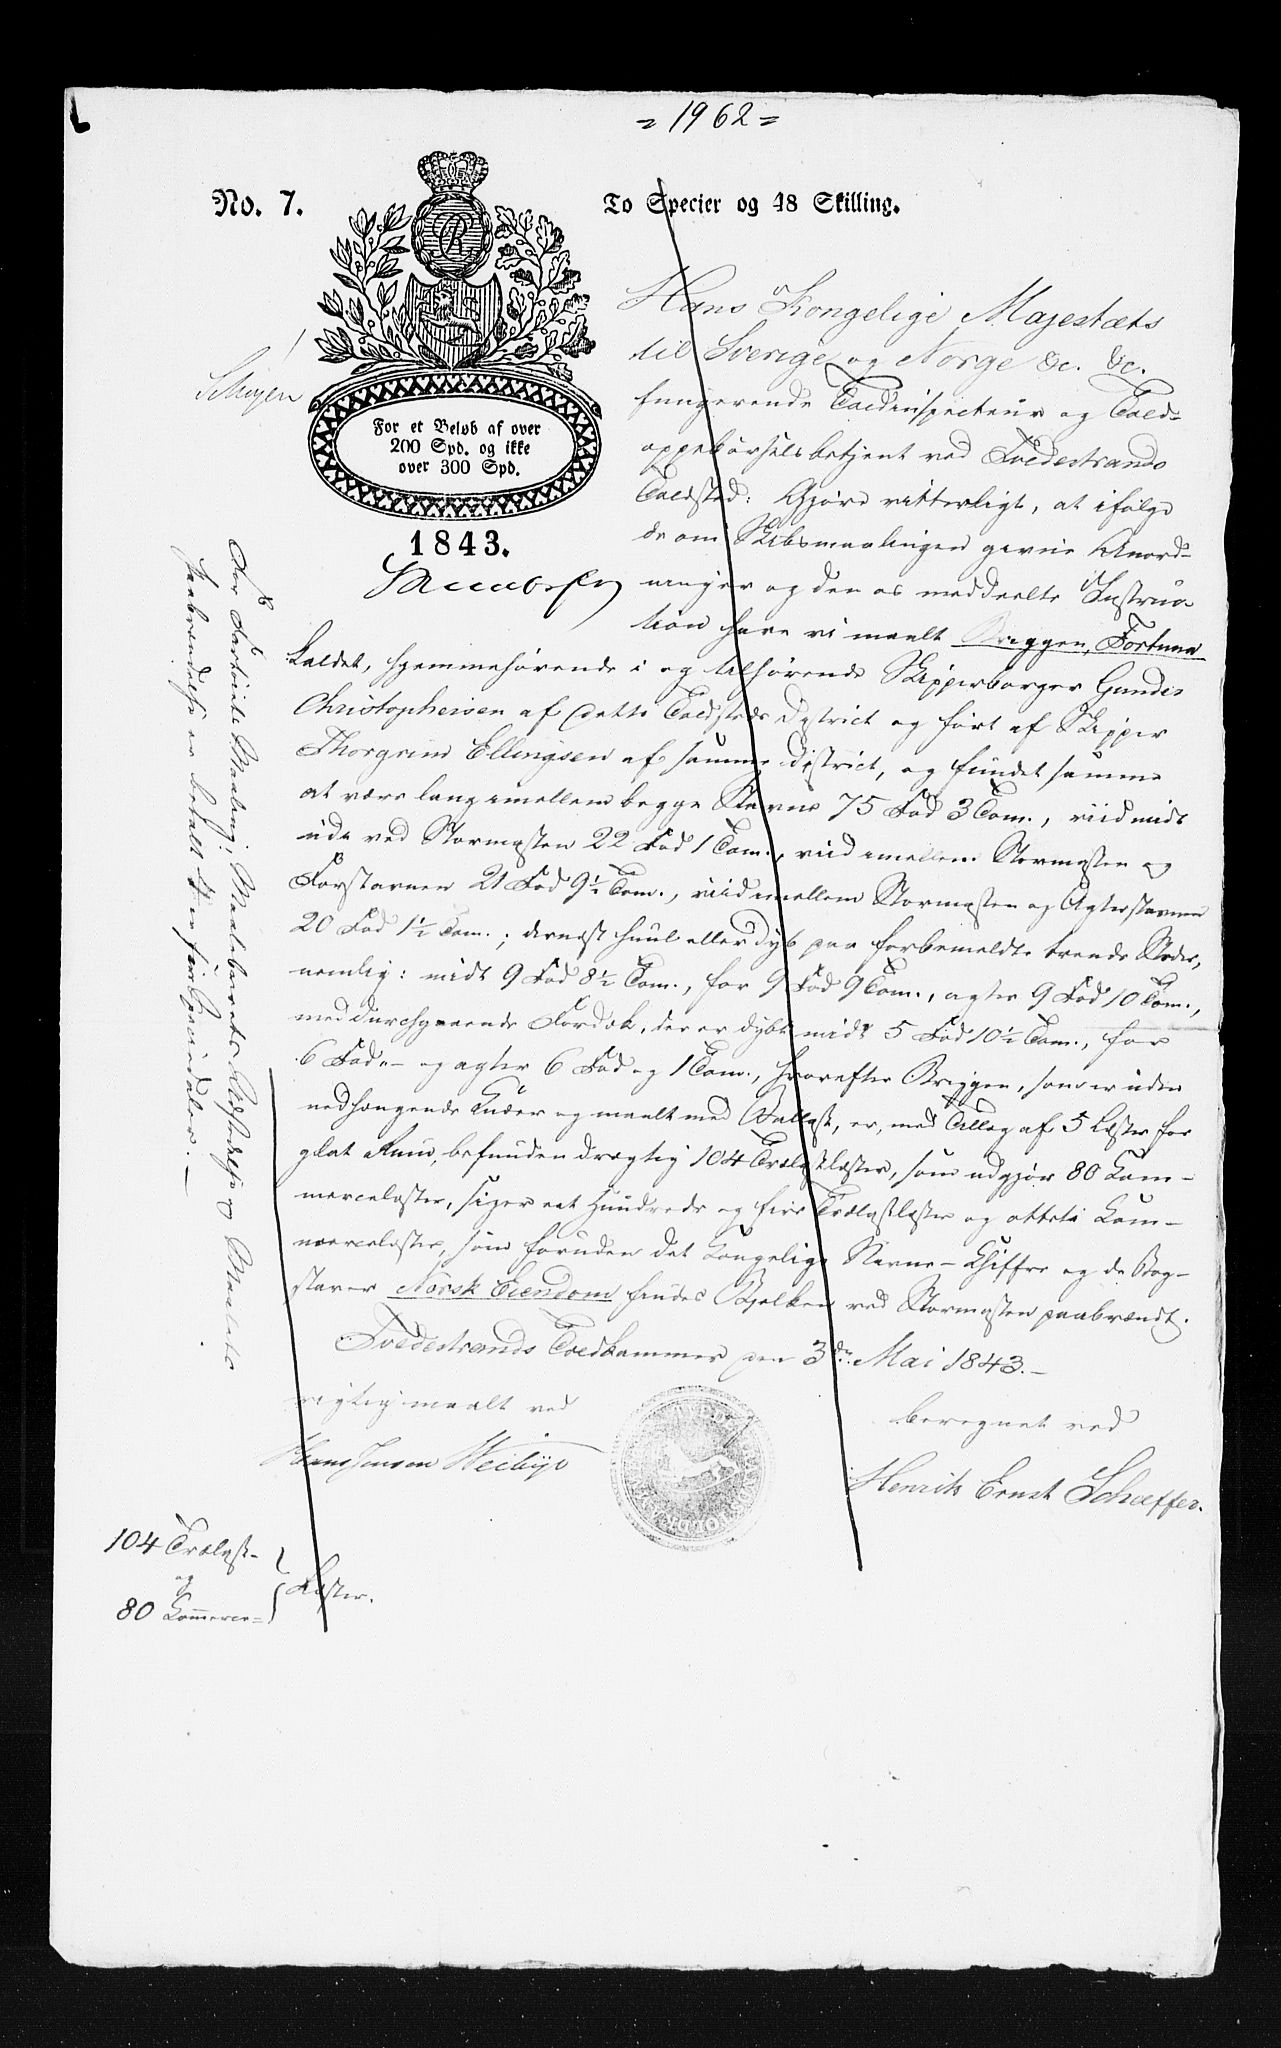 = 1962 =
No. 7.
To Specier og 48 Skilling.
For et Beløb af over
200 Spd. og ikke
over 300 Spd.
1843.
Hans Kongelige Majestæts
til Sverige og Norge &c. &c.
fungerende Toldinspecteur og Told-
oppebørselsbetjent ved Tvedestrands
Toldsted: Gjøre vitterligt, at ifølge
de om Skibsmaalingen givne Anord-
ninger og den os meddeelte Instruc-
tion have vi maalt Briggen, Fortuna
kaldet, hjemmehørende i og tilhørende Skipperborger Gunder
Christophersen af dette Toldsteds District og ført af Skipper
Thorgrim Ellingsen af samme District, og fundet samme
at være lang imellem begge Stævne 75 Fod 3 Tom., viid midt
ude ved Stormasten 22 Fod 1 Tom., viid imellem Stormasten og
Forstavnen 21 Fod 9½ Tom., viid imellem Stormasten og Agterstavnen
20 Fod 1½ Tom.; dernæst huul eller dyb paa forbemeldte trende Steder,
nemlig: midt 9 Fod 8½ Tom., for 9 Fod 9 Tom., agter 9 Fod 10 Tom.,
med durchgaaende Fordæk, der er dybt midt 5 Fod 10½ Tom., for
6 Fod - og agter 6 Fod og 1 Tom., hvorefter Briggen, som er uden
nedhængende Knæer og maalt med Ballast, er, med Tillæg af 5 Læster for
glat Rum, befunden drægtig 104 Trælastlæster, som udgjør 80 Com-
mercelæster, siger eet Hundrede og fire Trælastlæster og otteti Com-
mercelæster, som foruden det Kongelige Navne-Chiffre og de Bog-
staver Norsk Eiendom findes Bjelken ved Stormasten paabrændt.
Tvedestrands Toldkammer den 3die Mai 1843.-
rigtig maalt ved
Hans Jensen Weibye
beregnet ved
Henrik Ernst Schæffer.
104 Trælast-
og
80 Commerce=
Læster.
For Fartøiets Maaling, Maalebrevets Udstedelse og Maalets
Paabrændelse er betalt 4 er fire Speciedaler.-